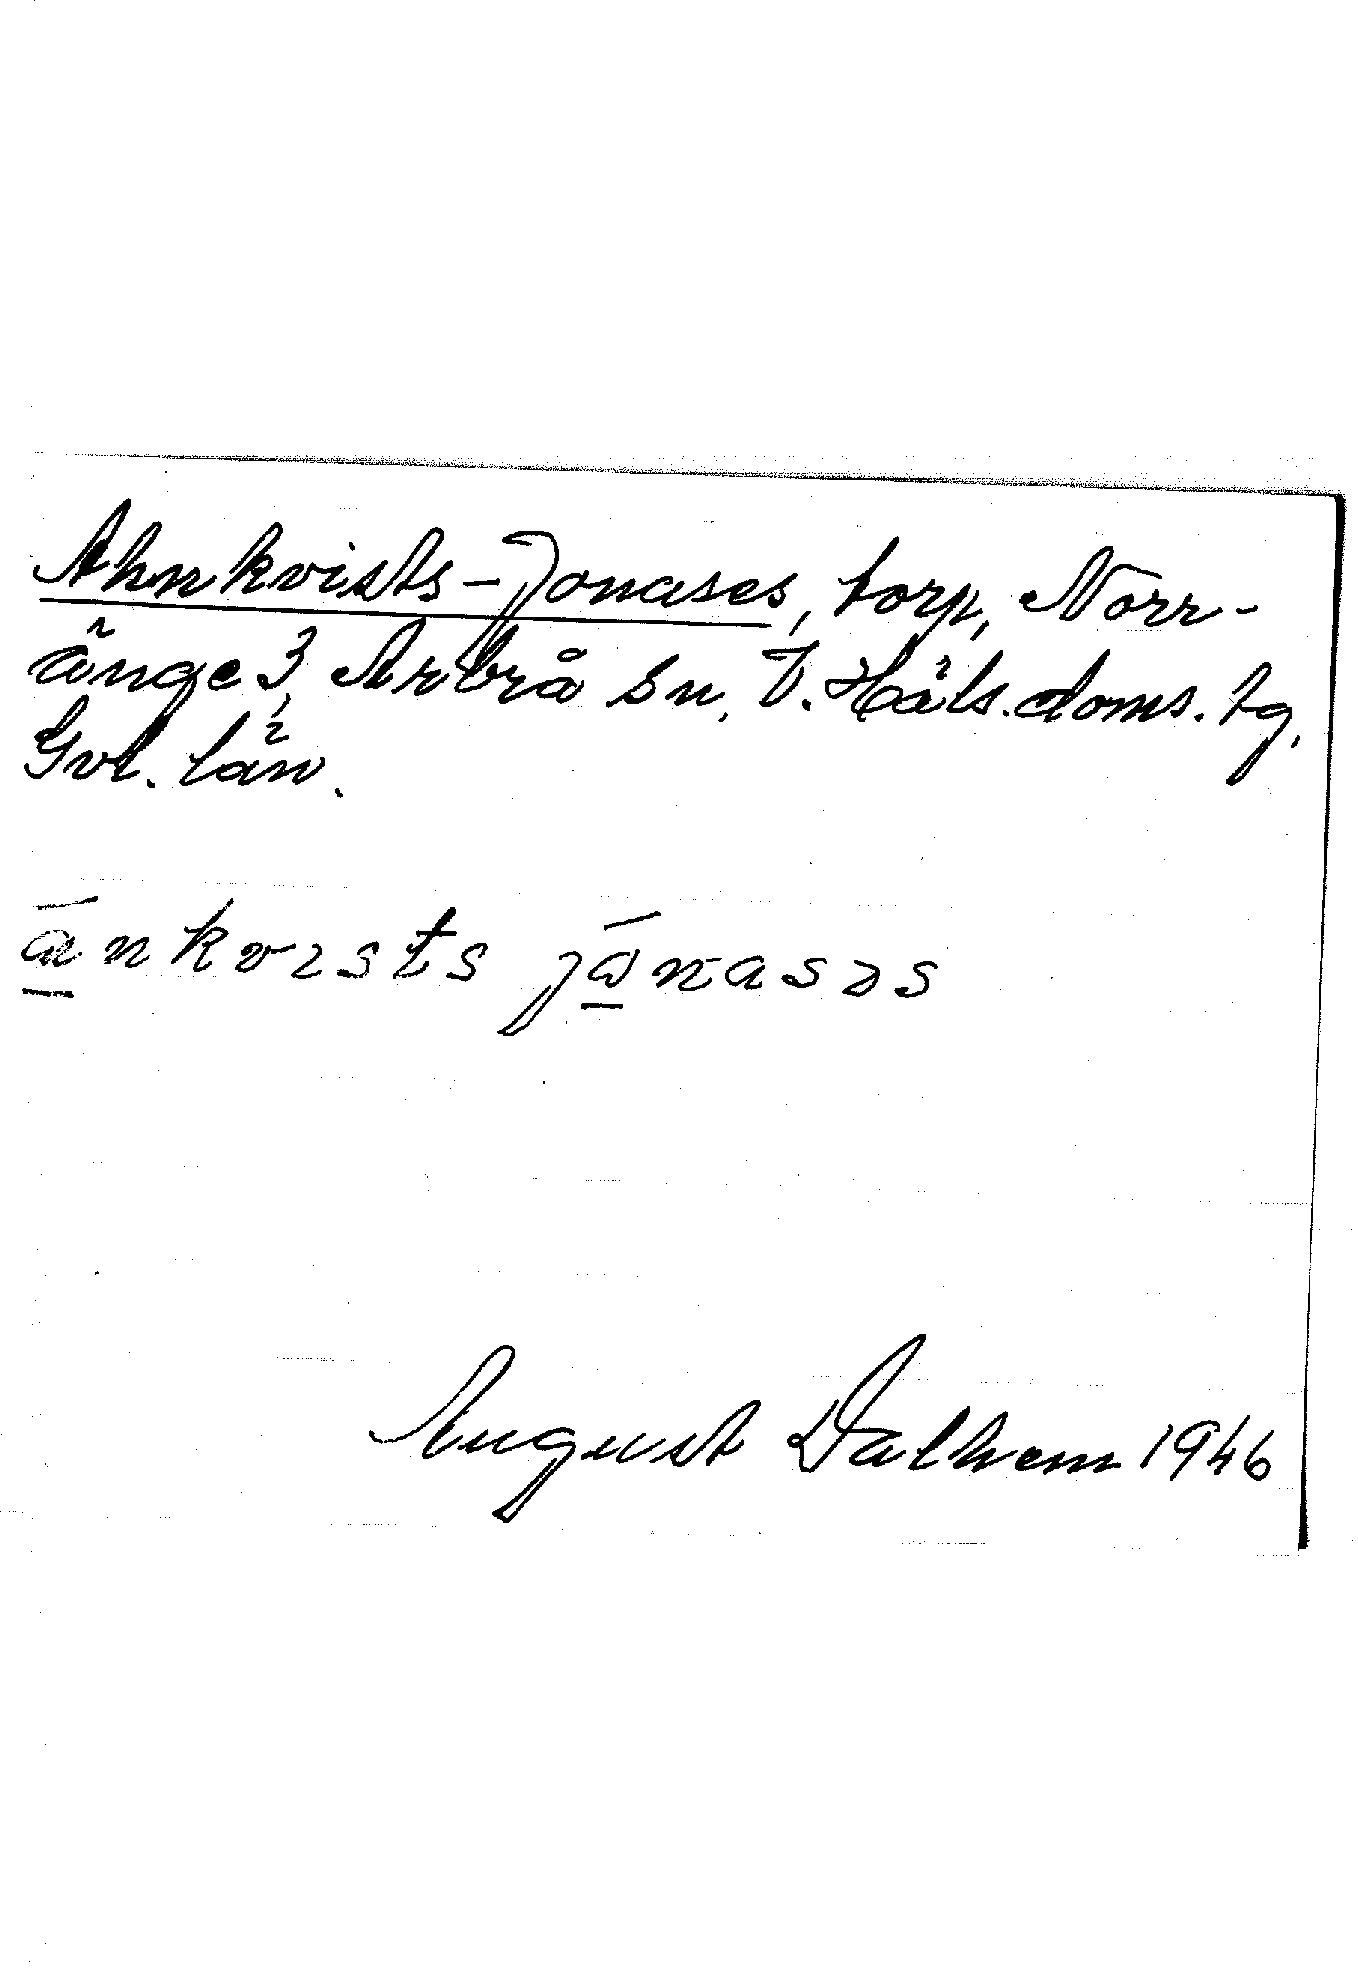 Ahnkvists-Jonases, torp, Norr-
änge 3, Arbrå sn, V. Häls. doms. tg,
Gvl. län.
ánkvısts jánasəs
August Dalhem 1946